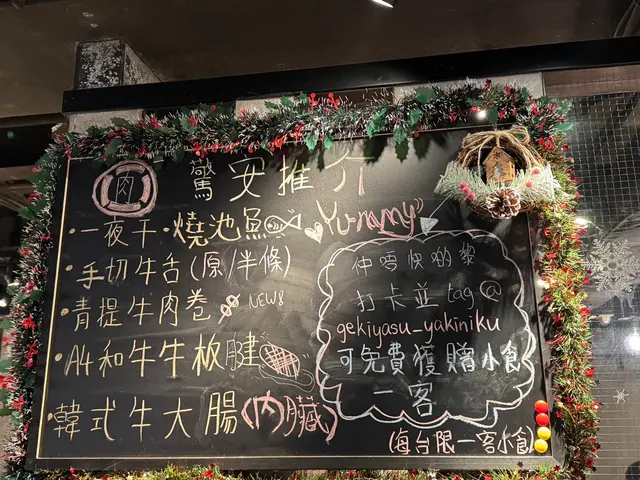 肉 驚安推介
・一夜干・燒池魚 Yummy
・手切牛舌(原/半條)
・青提牛肉卷 NEW!
・A4和牛牛板腱
・韓式牛大腸(內臟)
仲唔快啲黎
打卡並tag@
gekiyasu_yakiniku
可免費獲贈小食
一客
(每台限一客小食)